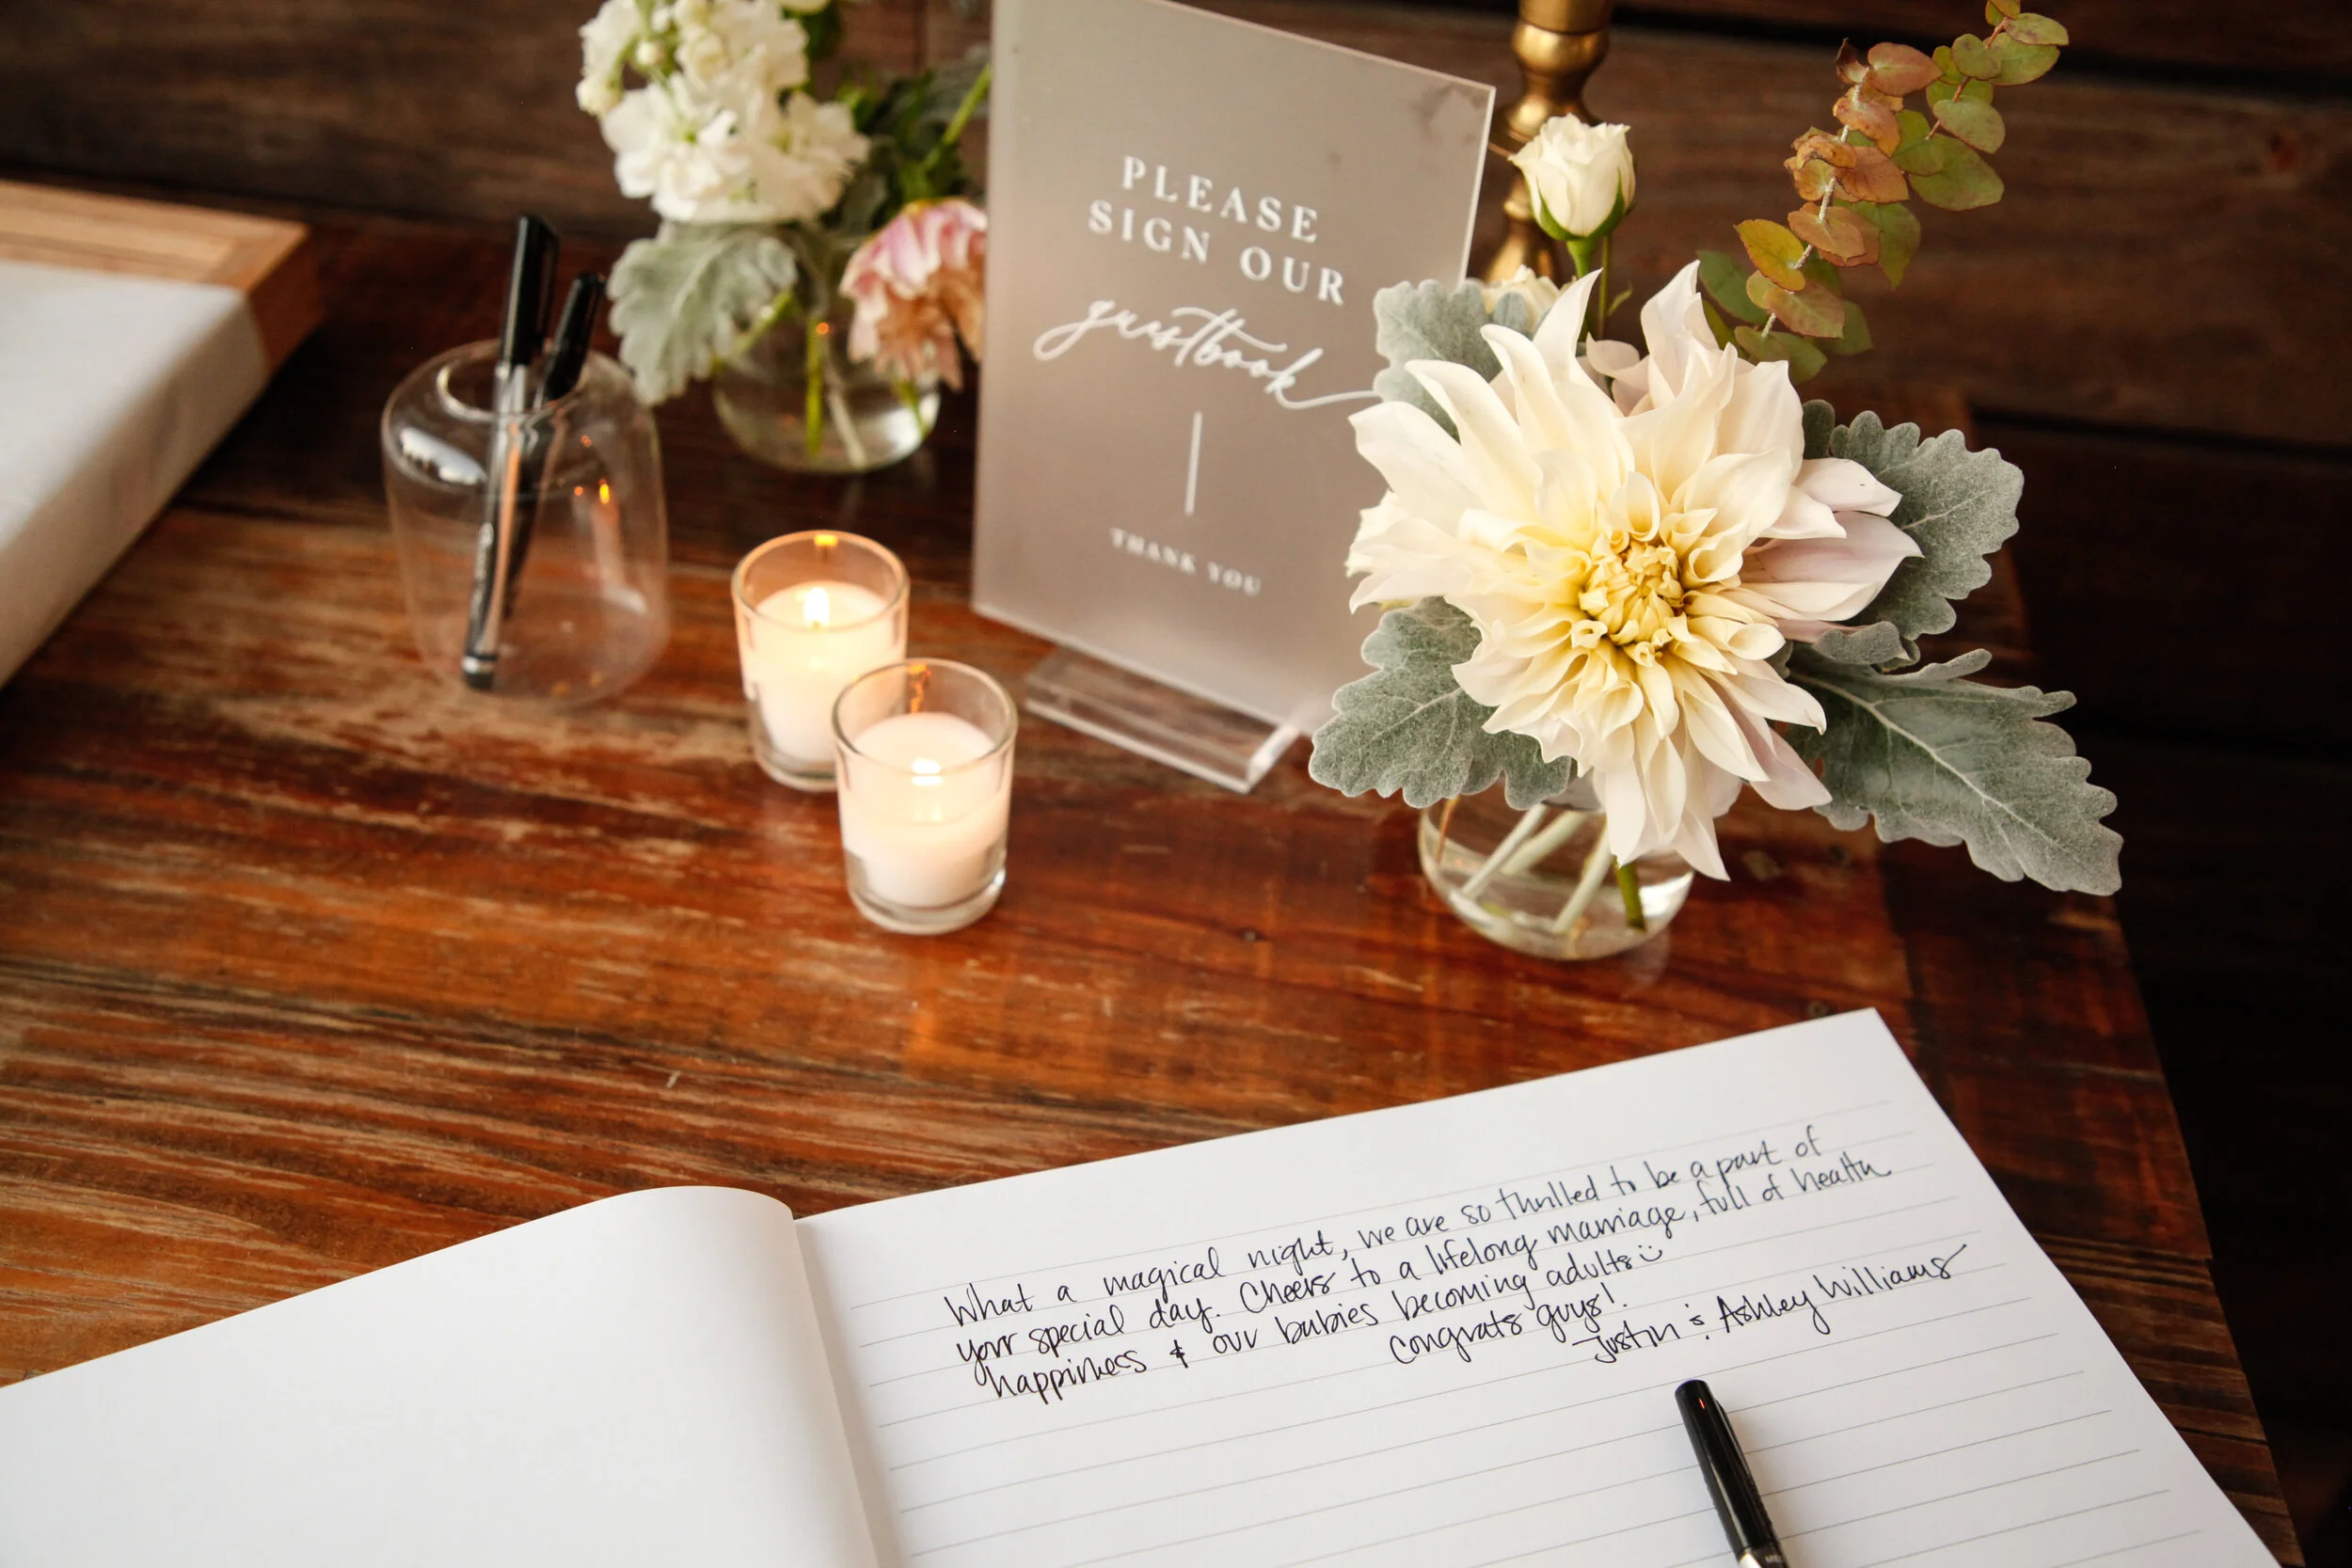 PLEASE
SIGN OUR
guestbook
THANK YOU
What a magical night, we are so thrilled to be a part of
your special day. Cheers to a lifelong marriage, full of health
happiness & our babies becoming adults :)
Congrats guys!
Justin & Ashley Williams